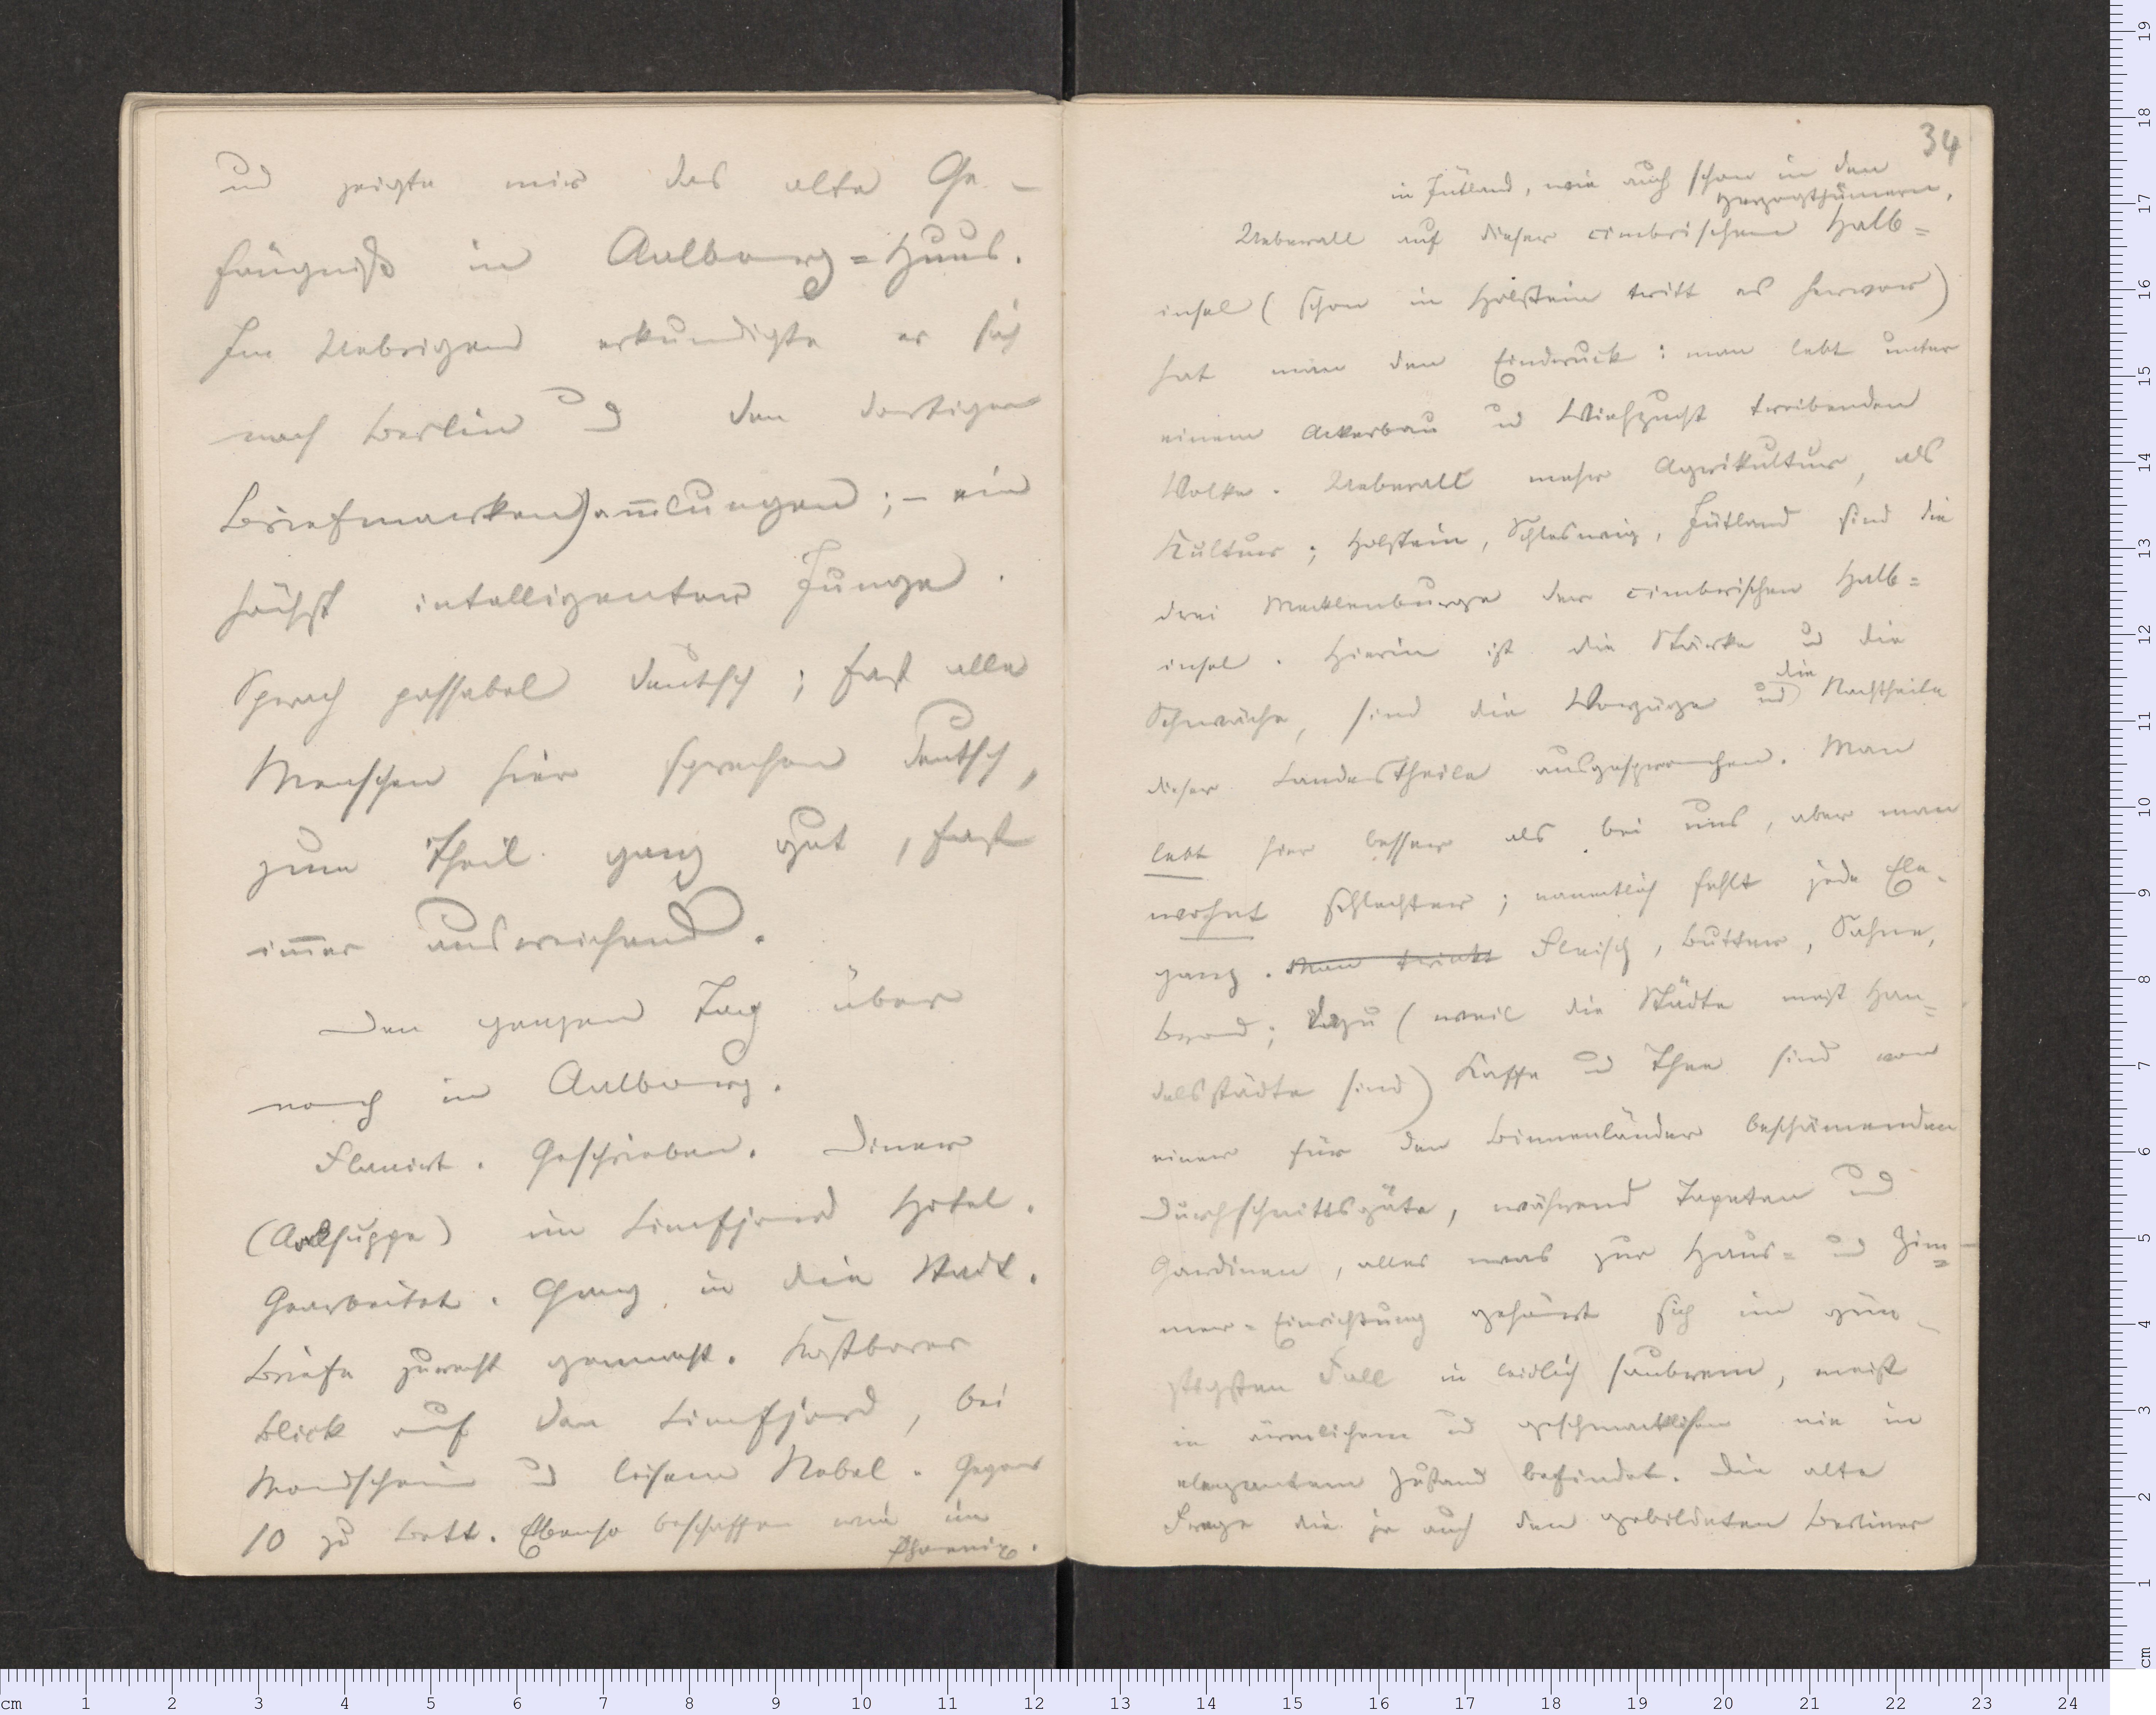 und zeigte mir das alte Ge-
fängniß in Aalborg-Huus.
Im Uebrigen erkundigte er sich
nach Berlin u den dortigen
Briefmarkensam̄lungen; – ein
höchst intelligenter Junge.
Sprach passabel deutsch; fast alle
Menschen hier sprechen deutsch,
zum Theil ganz gut, fast
im̄er ausreichend.
Den ganzen Tag über
noch in Aalborg.
Flanirt. Geschrieben. Diner
(Aalsuppe) im Limfjord Hotel.
Gearbeitet. Gang in die Stadt.
Briefe zurecht gemacht. Kostbarer
Blick auf den Limfjord, bei
Mondschein u leisem Nebel. Gegen
10 zu Bett. Ebenso beschaffen wie im
Phoenix.
34
in Jütland, wie auch schon in den
Herzogthümern,
Ueberall auf dieser cimbrischen Halb=
insel (schon in Holstein tritt es hervor)
hat man den Eindruck: man lebt unter
einem Ackerbau und Viehzucht treibenden
Volke. Ueberall mehr Agrikultur, als
Kultur; Holstein, Schleswig, Jütland sind die
drei Mecklenburge der cimbrischen Halb=
insel. Hierin ist die Stärke u die
die
Schwäche, sind die Vorzüge und Nachtheile
dieser Landestheile ausgesprochen. Man
lebt hier besser als bei uns, aber man
wohnt schlechter; namentlich fehlt jede Ele-
ganz. Man trinkt Fleisch, Butter, Sahne,
Brod; dazu (weil die Städte meist Han=
delsstädte sind) Kaffe u Thee sind von
einer für den Binnenländer beschämenden
Durchschnittsgüte, während Tapeten und
Gardinen, alles was zur Haus= und Zim=
mer-Einrichtung gehört sich im gün-
stigsten Fall in leidlich saubrem, meist
in ärmlichem und geschmacklosen nie in
elegantem Zustand befindet. Die alte
Frage die ja auch den gebildeten Berliner